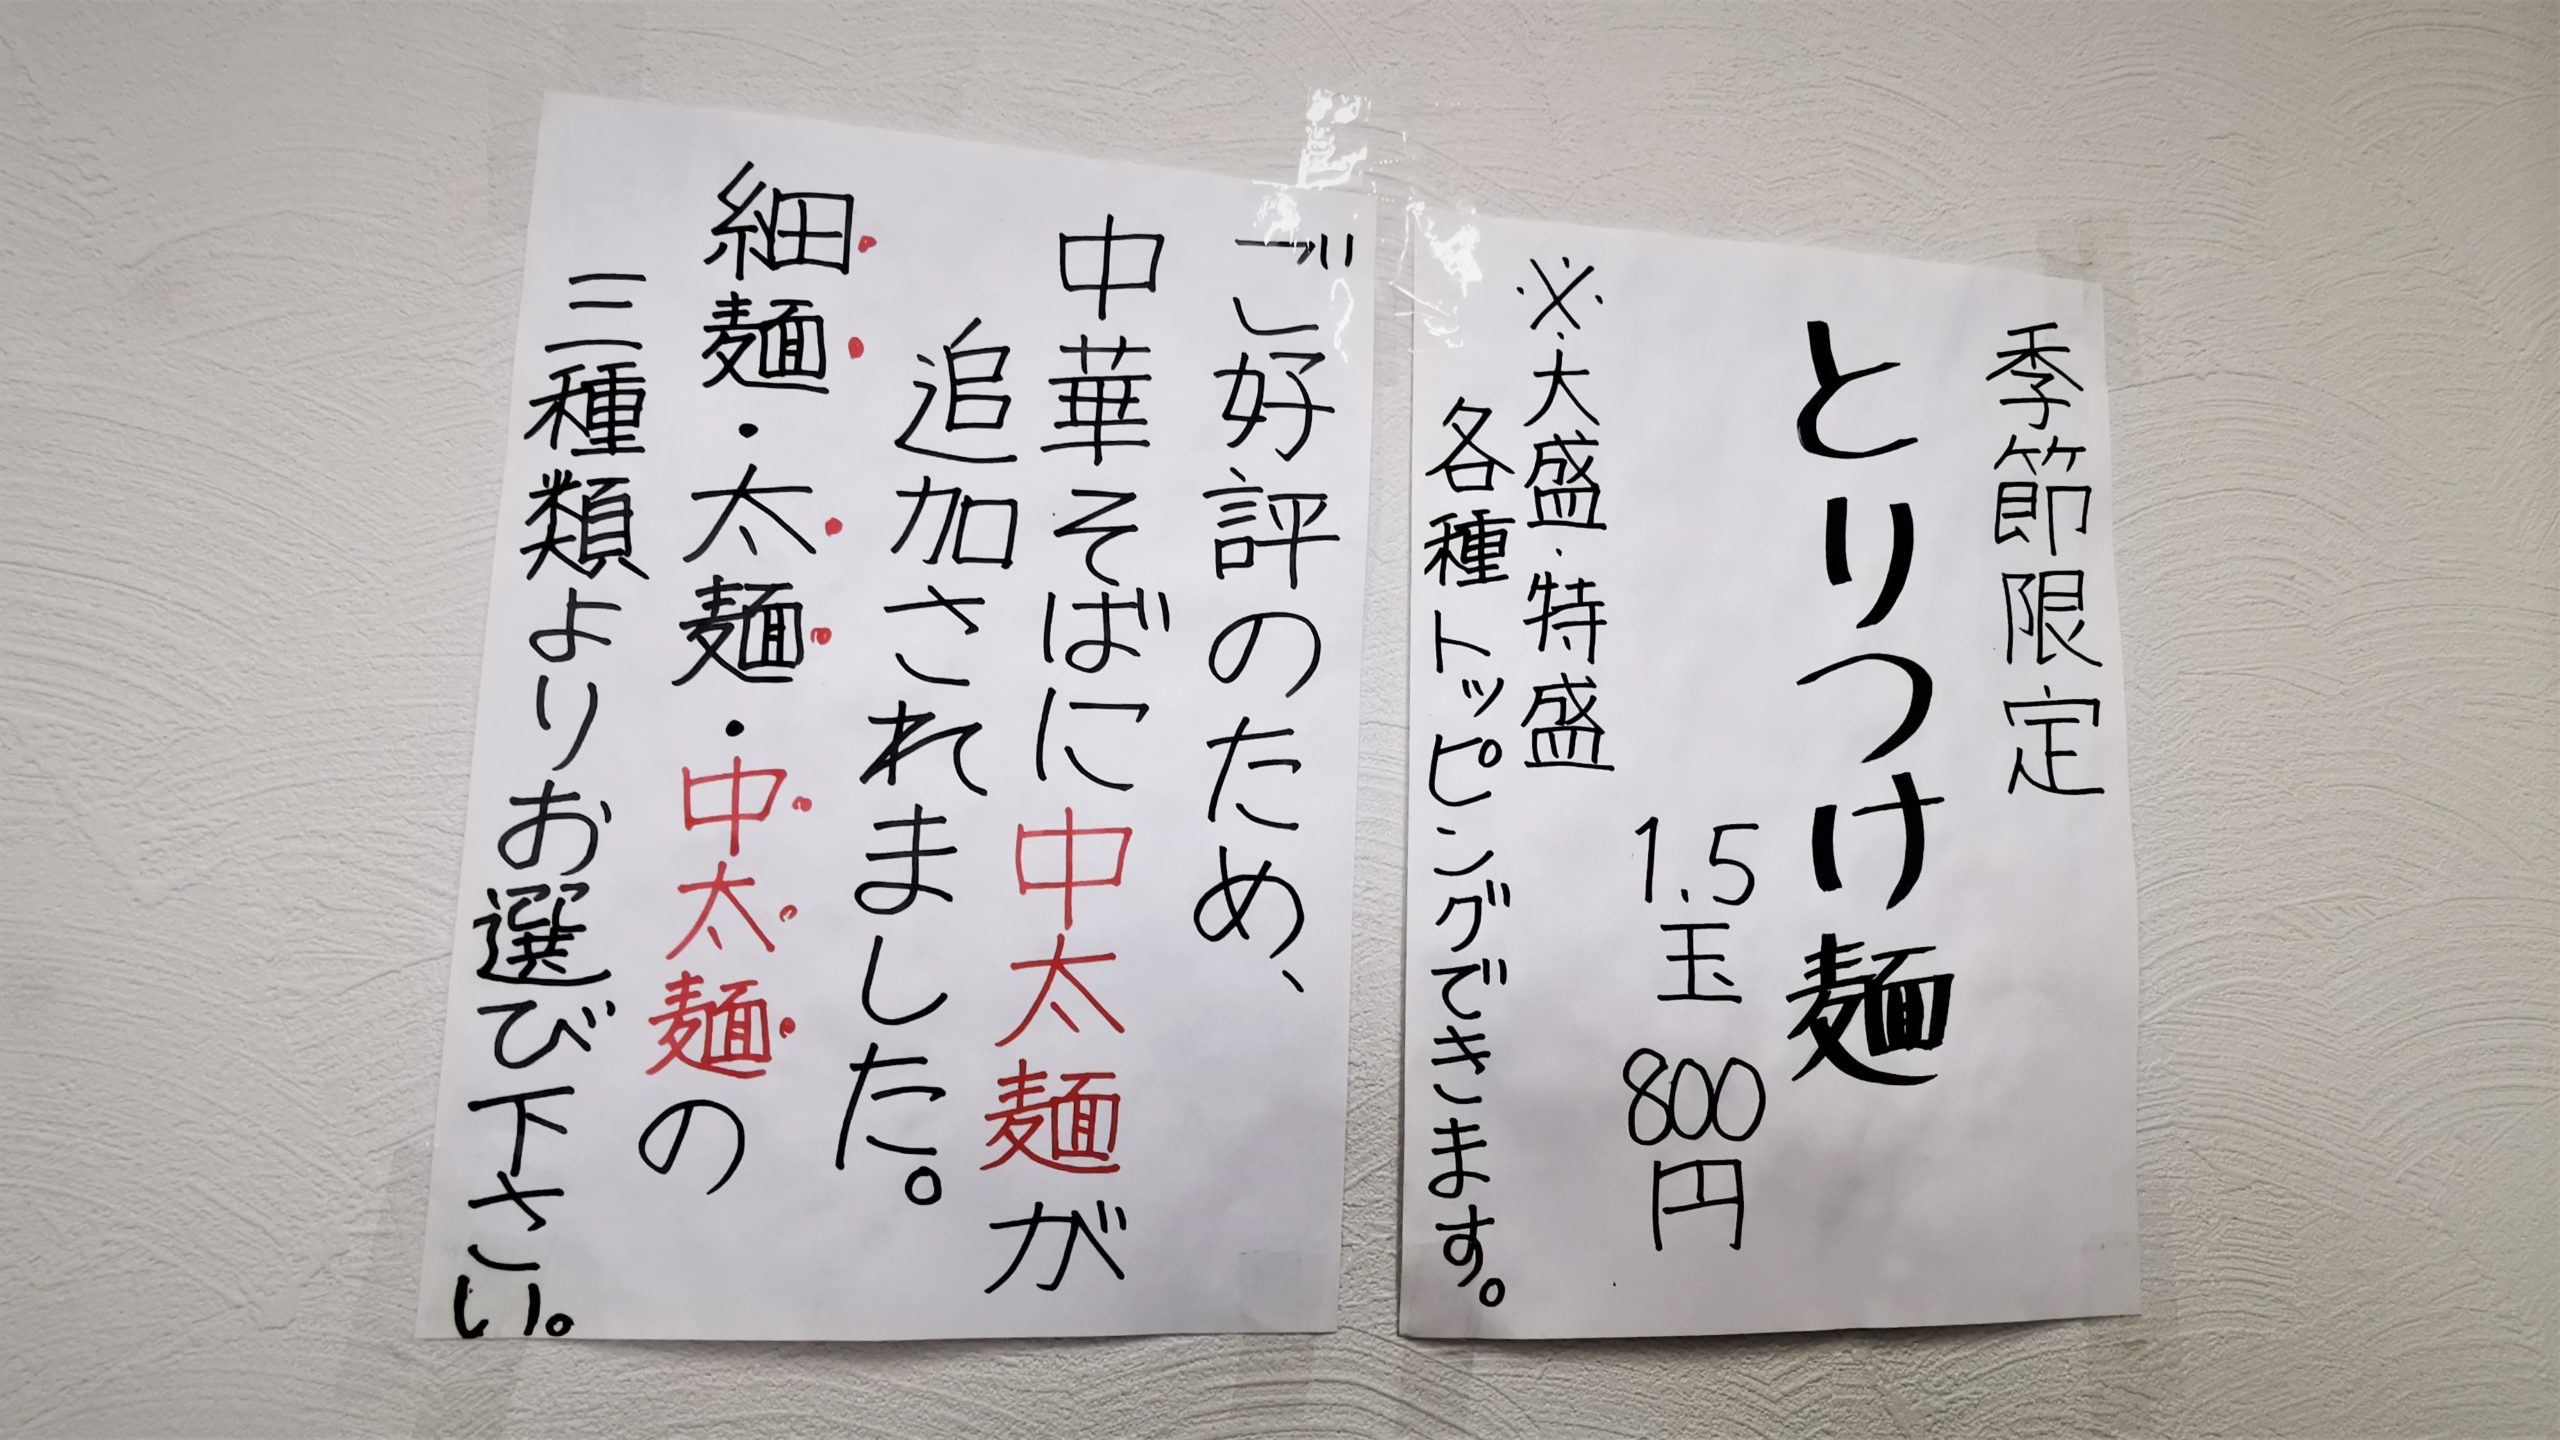 季節限定
とりつけ麺
1.5玉 800円
※大盛・特盛
各種トッピングできます。
ご好評のため、
中華そばに中太麺が
追加されました。
細麺・太麺・中太麺の
三種類よりお選び下さい。